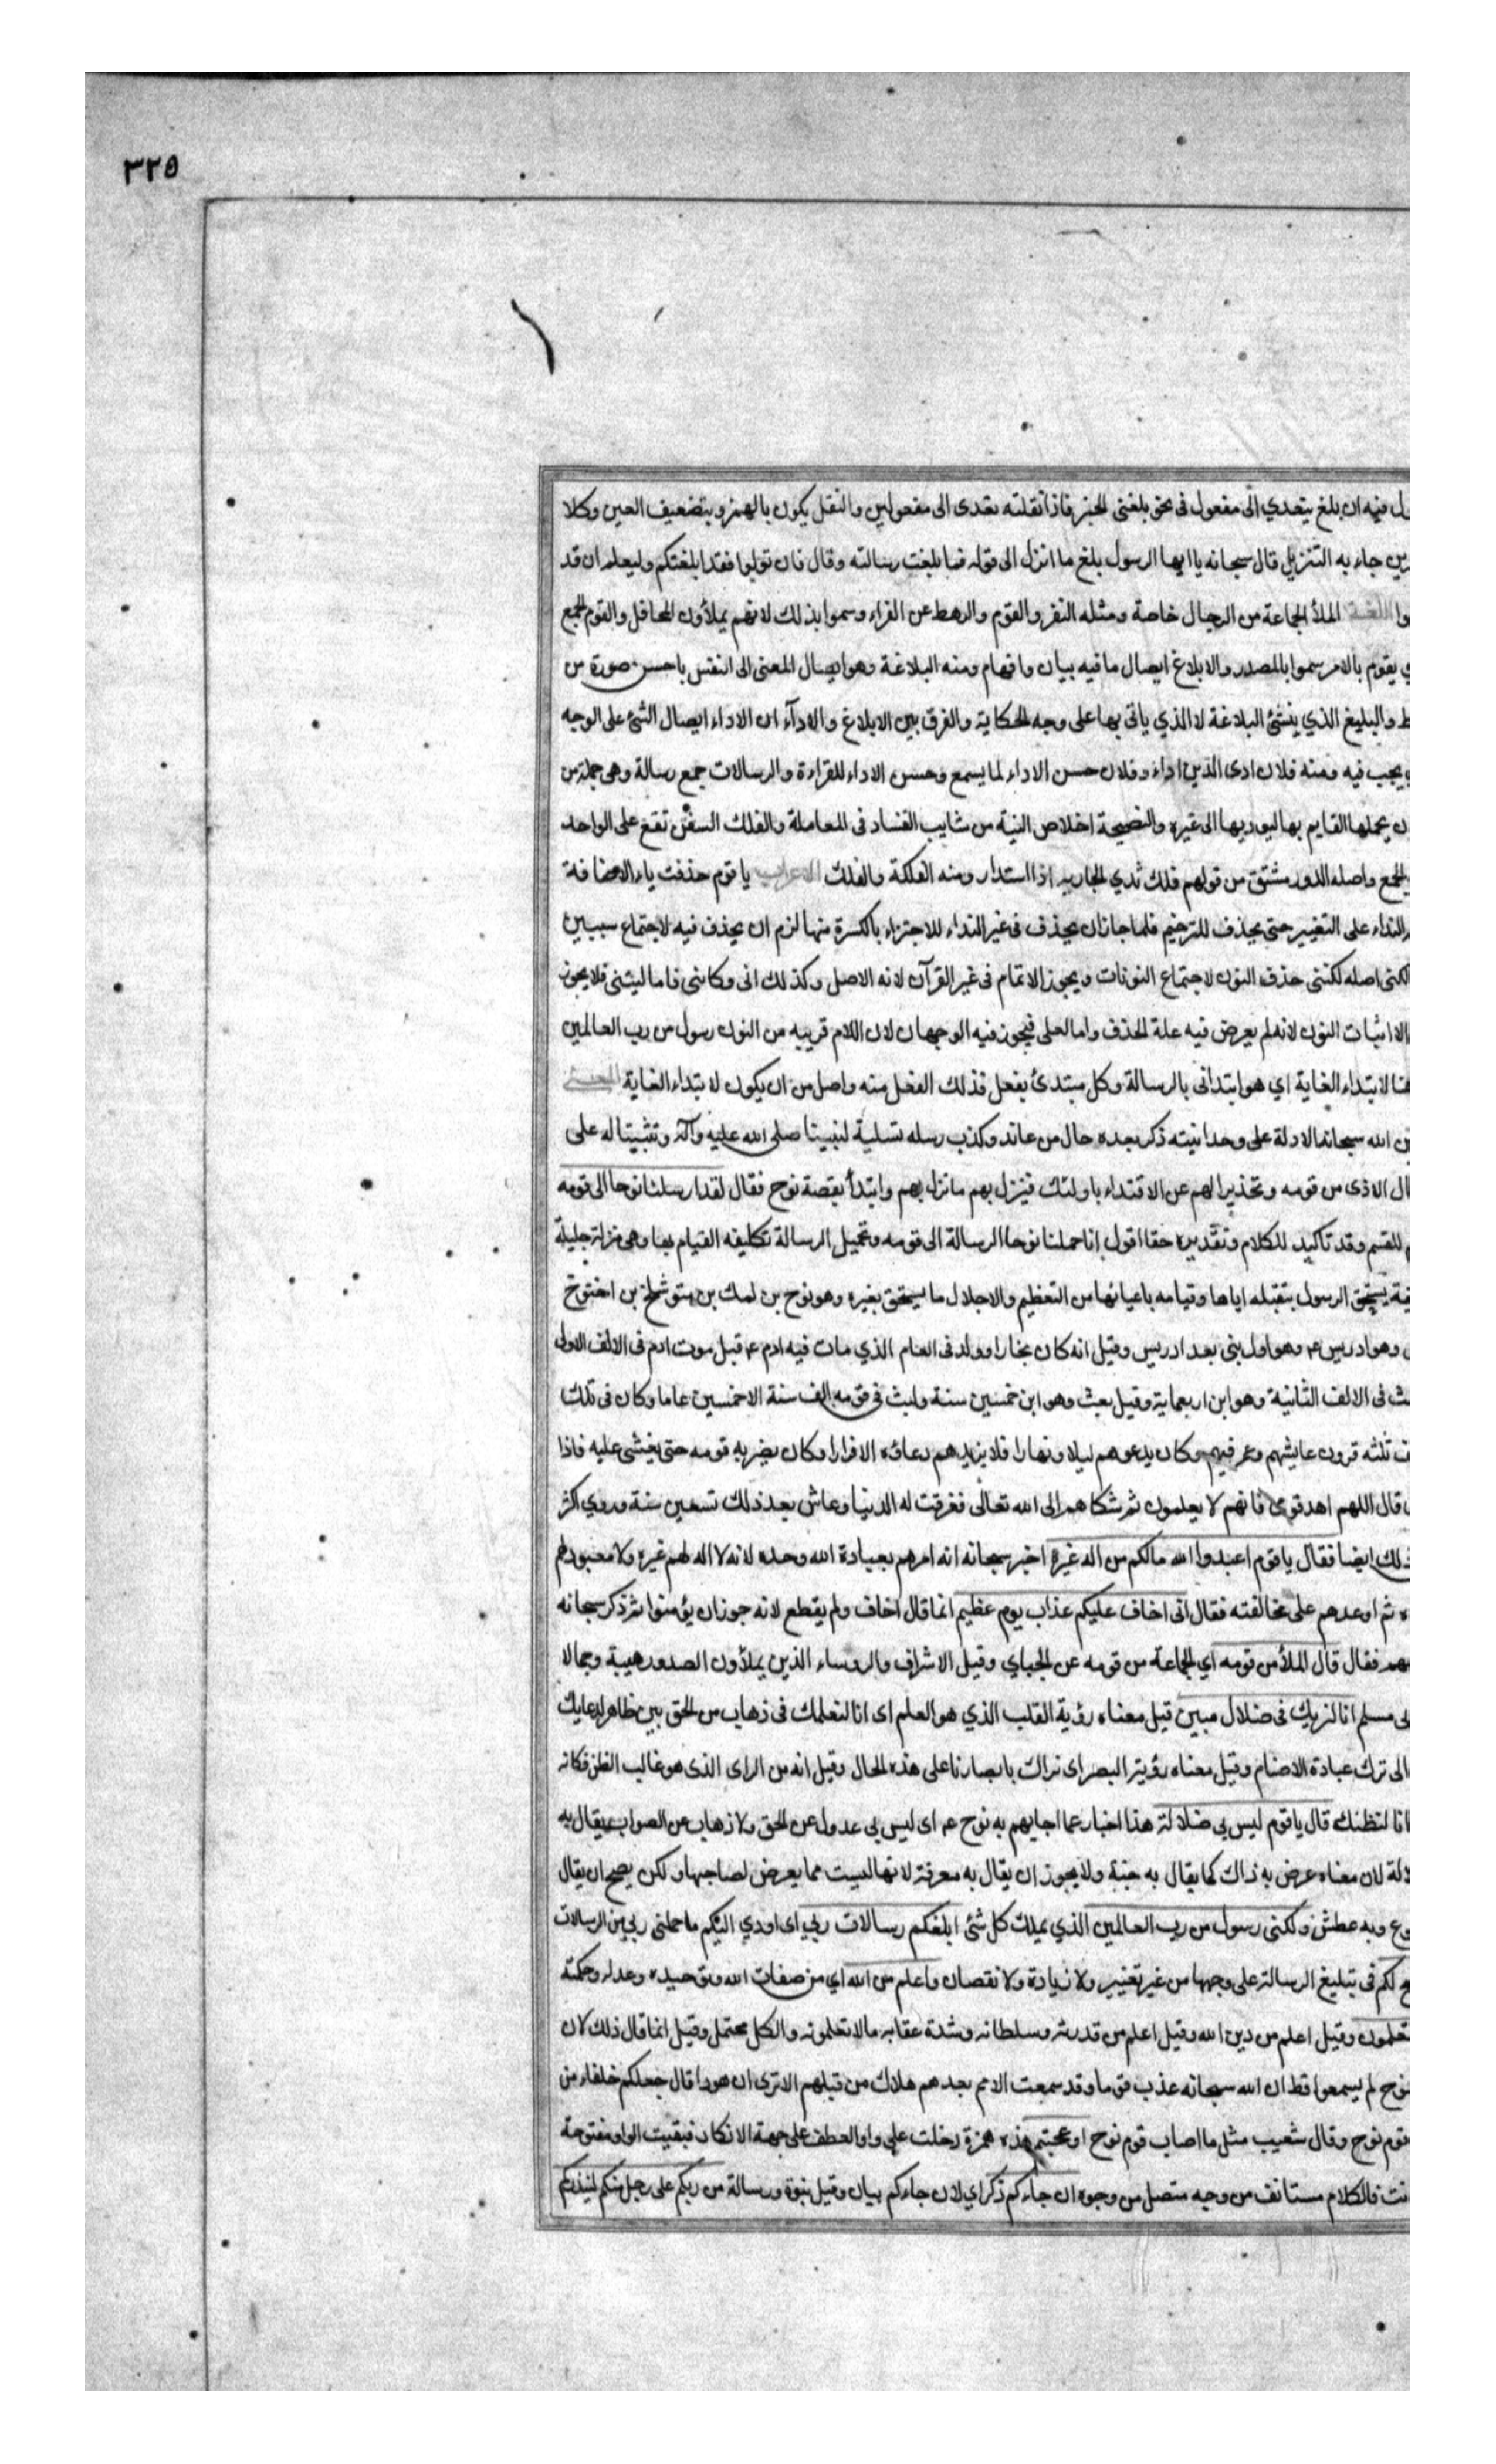 ٣٢٥
فيه ان بلغ يتعدي الى مفعول فى نحو بلغنى الخبر فاذا نقلته تعدى الى مفعولين والنقل يكون بالهمز وبتضعيف العين وكلا
جاء به التنزيل قال سبحانه يا ايها الرسول بلغ ما انزل الى قوله فما بلغت رسالته وقال فان تولوا فقد ابلغتكم وليعلم ان قد
اللغة الملأ الجماعة من الرجال خاصة ومثله النفر والقوم والرهط عن الفراء وسموا بذلك لانهم يملأون المحافل والقوم الجمع
يقوم بالامر سموا بالمصدر والابلاغ ايصال ما فيه بيان وافهام ومنه البلاغة وهو ايصال المعنى الى النفس باحسن صورة من
والبليغ الذي ينشئ البلاغة لا الذي ياتى بها على وجه الحكاية والفرق بين الابلاغ والادآء ان الاداء ايصال الشئ على الوجه
يجب فيه ومنه فلان ادى الدين اداء وفلان حسن الاداء لما يسمع وحسن الاداء للقراءة والرسالات جمع رسالة وهى جملة من
يحملها القايم بها ليوديها الى غيره والنصيحة اخلاص النية من شايب الفساد فى المعاملة والفلك السفن تقع على الواحد
الجمع واصله الدور مشتق من قولهم فلك ثدي الجارية اذا استدار ومنه الفلكة والفلك الاعراب يا قوم حذفت ياء الاضافة
النداء على التغيير حتى يحذف للترخيم فلما جاز ان يحذف فى غير النداء للاجتزاء بالكسرة منها لزم ان يحذف فيه لاجتماع سببين
لكنى اصله لكننى حذف النون لاجتماع النونات ويجوز الاتمام فى غير القرآن لانه الاصل وكذلك انى وكانى فاما ليتنى فلا يجوز
الا اثبات النون لانه لم يعرض فيه علة الحذف واما لعلى فيجوز فيه الوجهان لان اللام قريبه من النون رسول من رب العالمين
لابتداء الغاية اي هو ابتدانى بالرسالة وكل مبتدئ بفعل فذلك الفعل منه واصل من ان يكون لابتداء الغاية المعنى
الله سبحانه الادلة على وحدانيته ذكر بعده حال من عاند وكذب رسله تسلية لنبينا صلى الله عليه وآله وتثبيتا له على
الاذى من قومه وتحذيرا لهم عن الاقتداء باولئك فينزل بهم ما نزل بهم وابتدأ بقصة نوح فقال لقد ارسلنا نوحا الى قومه
للقسم وقد تاكيد للكلام وتقديره حقا اقول انا حملنا نوحا الرسالة الى قومه وتحميل الرسالة تكليفه القيام بها وهى منزلة جليلة
يستحق الرسول بتقبله اياها وقيامه باعيائها من التعظيم والاجلال ما يستحق بغيره وهو نوح بن لمك بن متوشلخ بن اخنوخ
وهو ادريس ع وهو اول نبى بعد ادريس وقيل انه كان نجارا وولد فى العام الذي مات فيه ادم ع قبل موت ادم فى الالف الاولى
فى الالف الثانية وهو ابن اربعماية وقيل بعث وهو ابن خمسين سنة ولبث فى قومه الف سنة الا خمسين عاما وكان فى تلك
ثلثه قرون عايشهم وعمر فيهم وكان يدعوهم ليلا ونهارا فلا يزيدهم دعاؤه الا فرارا وكان يضربه قومه حتى يغشى عليه فاذا
قال اللهم اهد قومى فانهم لا يعلمون ثم شكاهم الى الله تعالى فغرقت له الدنيا وعاش بعد ذلك تسعين سنة وروي اكثر
ذلك ايضا فقال يا قوم اعبدوا الله مالكم من اله غيره اخبر سبحانه انه امرهم بعبادة الله وحده لانه لا اله لهم غيره ولا معبود لهم
ثم اوعدهم على مخالفته فقال انى اخاف عليكم عذاب يوم عظيم انما قال اخاف ولم يقطع لانه جوز ان يؤمنوا ثم ذكر سبحانه
فقال قال الملأ من قومه اي الجماعة من قومه عن الجباي وقيل الاشراف والروساء الذين يملأون الصدور هيبة وجمالا
ابى مسلم انا لنريك فى ضلال مبين قيل معناه رؤية القلب الذي هو العلم اى انا لنعلمك فى ذهاب من الحق بين ظاهر لدعايك
الى ترك عبادة الاصنام وقيل معناه رؤية البصر اى نراك بابصارنا على هذه الحال وقيل انه من الراى الذى هو غالب الظن فكانه
انا لنظنك قال يا قوم ليس بى ضلالة هذا اخبار عما اجابهم به نوح ع اى ليس بى عدول عن الحق ولا ذهاب عن الصواب يقال به
لان معناه عرض به ذاك كما يقال به جنة ولا يجوز ان يقال به معرفة لانها ليست مما يعرض لصاحبها ولكن يصح ان يقال
وبه عطش ولكنى رسول من رب العالمين الذي يملك كل شئ ابلغكم رسالات ربى اى اودي اليكم ما حملنى ربى من الرسالات
لكم فى تبليغ الرسالة على وجهها من غير تغيير ولا زيادة ولا نقصان واعلم من الله اي من صفات الله وتوحيده وعدله وحكمته
تعلمون وقيل اعلم من دين الله وقيل اعلم من قدرته وسلطانه وشدة عقابه ما لا تعلمونه والكل محتمل وقيل انما قال ذلك لان
نوح لم يسمعوا قط ان الله سبحانه عذب قوما وقد سمعت الامم بعدهم هلاك من قبلهم الا ترى ان هودا قال جعلكم خلفاء من
قوم نوح وقال شعيب مثل ما اصاب قوم نوح اوعجبتم هذه همزة دخلت على واو العطف على جهة الانكار فبقيت الواو مفتوحة
فالكلام مستانف من وجه متصل من وجوه ان جاءكم ذكر اي لان جاءكم بيان وقيل نبوة ورسالة من ربكم على رجل منكم لينذركم